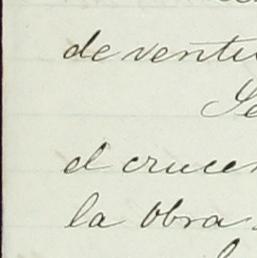 de ventu
Se
el crucer
la obra